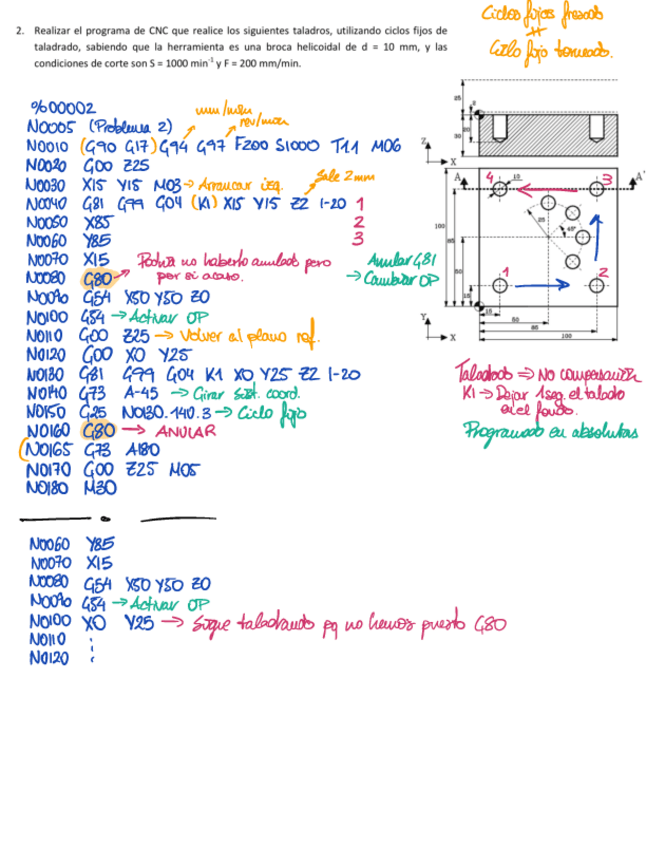 Ciclos fijos fresado
≠
Ciclo fijo torneado.
2. Realizar el programa de CNC que realice los siguientes taladros, utilizando ciclos fijos de
taladrado, sabiendo que la herramienta es una broca helicoidal de d = 10 mm, y las
condiciones de corte son S = 1000 min⁻¹ y F = 200 mm/min.
%00002
mm/min
N0005 (Problema 2)
rev/min
N0010 (G90 G17) G94 G97 F200 S1000 T1.1 M06
N0020 G00 Z25
N0030 X15 Y15 M03 → Arrancar izq.
Sale 2mm
N0040 G81 G99 G04 (K1) X15 Y15 Z2 I-20 1
N0050 X85 2
N0060 Y85 3
N0070 X15 Podría no haberlo anulado pero
Anular G81
N0080 G80 → por si acaso.
→ Cambiar OP
N0090 G54 X50 Y50 Z0
N0100 G54 → Activar OP
N0110 G00 Z25 → Volver al plano ref.
N0120 G00 X0 Y25
N0130 G81 G99 G04 K1 X0 Y25 Z2 I-20
N0140 G73 A-45 → Girar sist. coord.
N0150 G25 N0130.140.3 → Ciclo fijo
N0160 G80 → ANULAR
(N0165 G73 A180
N0170 G00 Z25 M05
N0180 M30
Taladrado ⇒ No compensación
K1 → Dejar 1seg. el taladro
en el fondo.
Programado en absolutas
N0060 Y85
N0070 X15
N0080 G54 X50 Y50 Z0
N0090 G54 → Activar OP
N0100 X0 Y25 → Sigue taladrando pq no hemos puesto G80
N0110
N0120
25
2
30
20
Z
X
A
A'
4
10
3
100
85
50
15
25
45°
1
2
Y
X
15
50
85
100